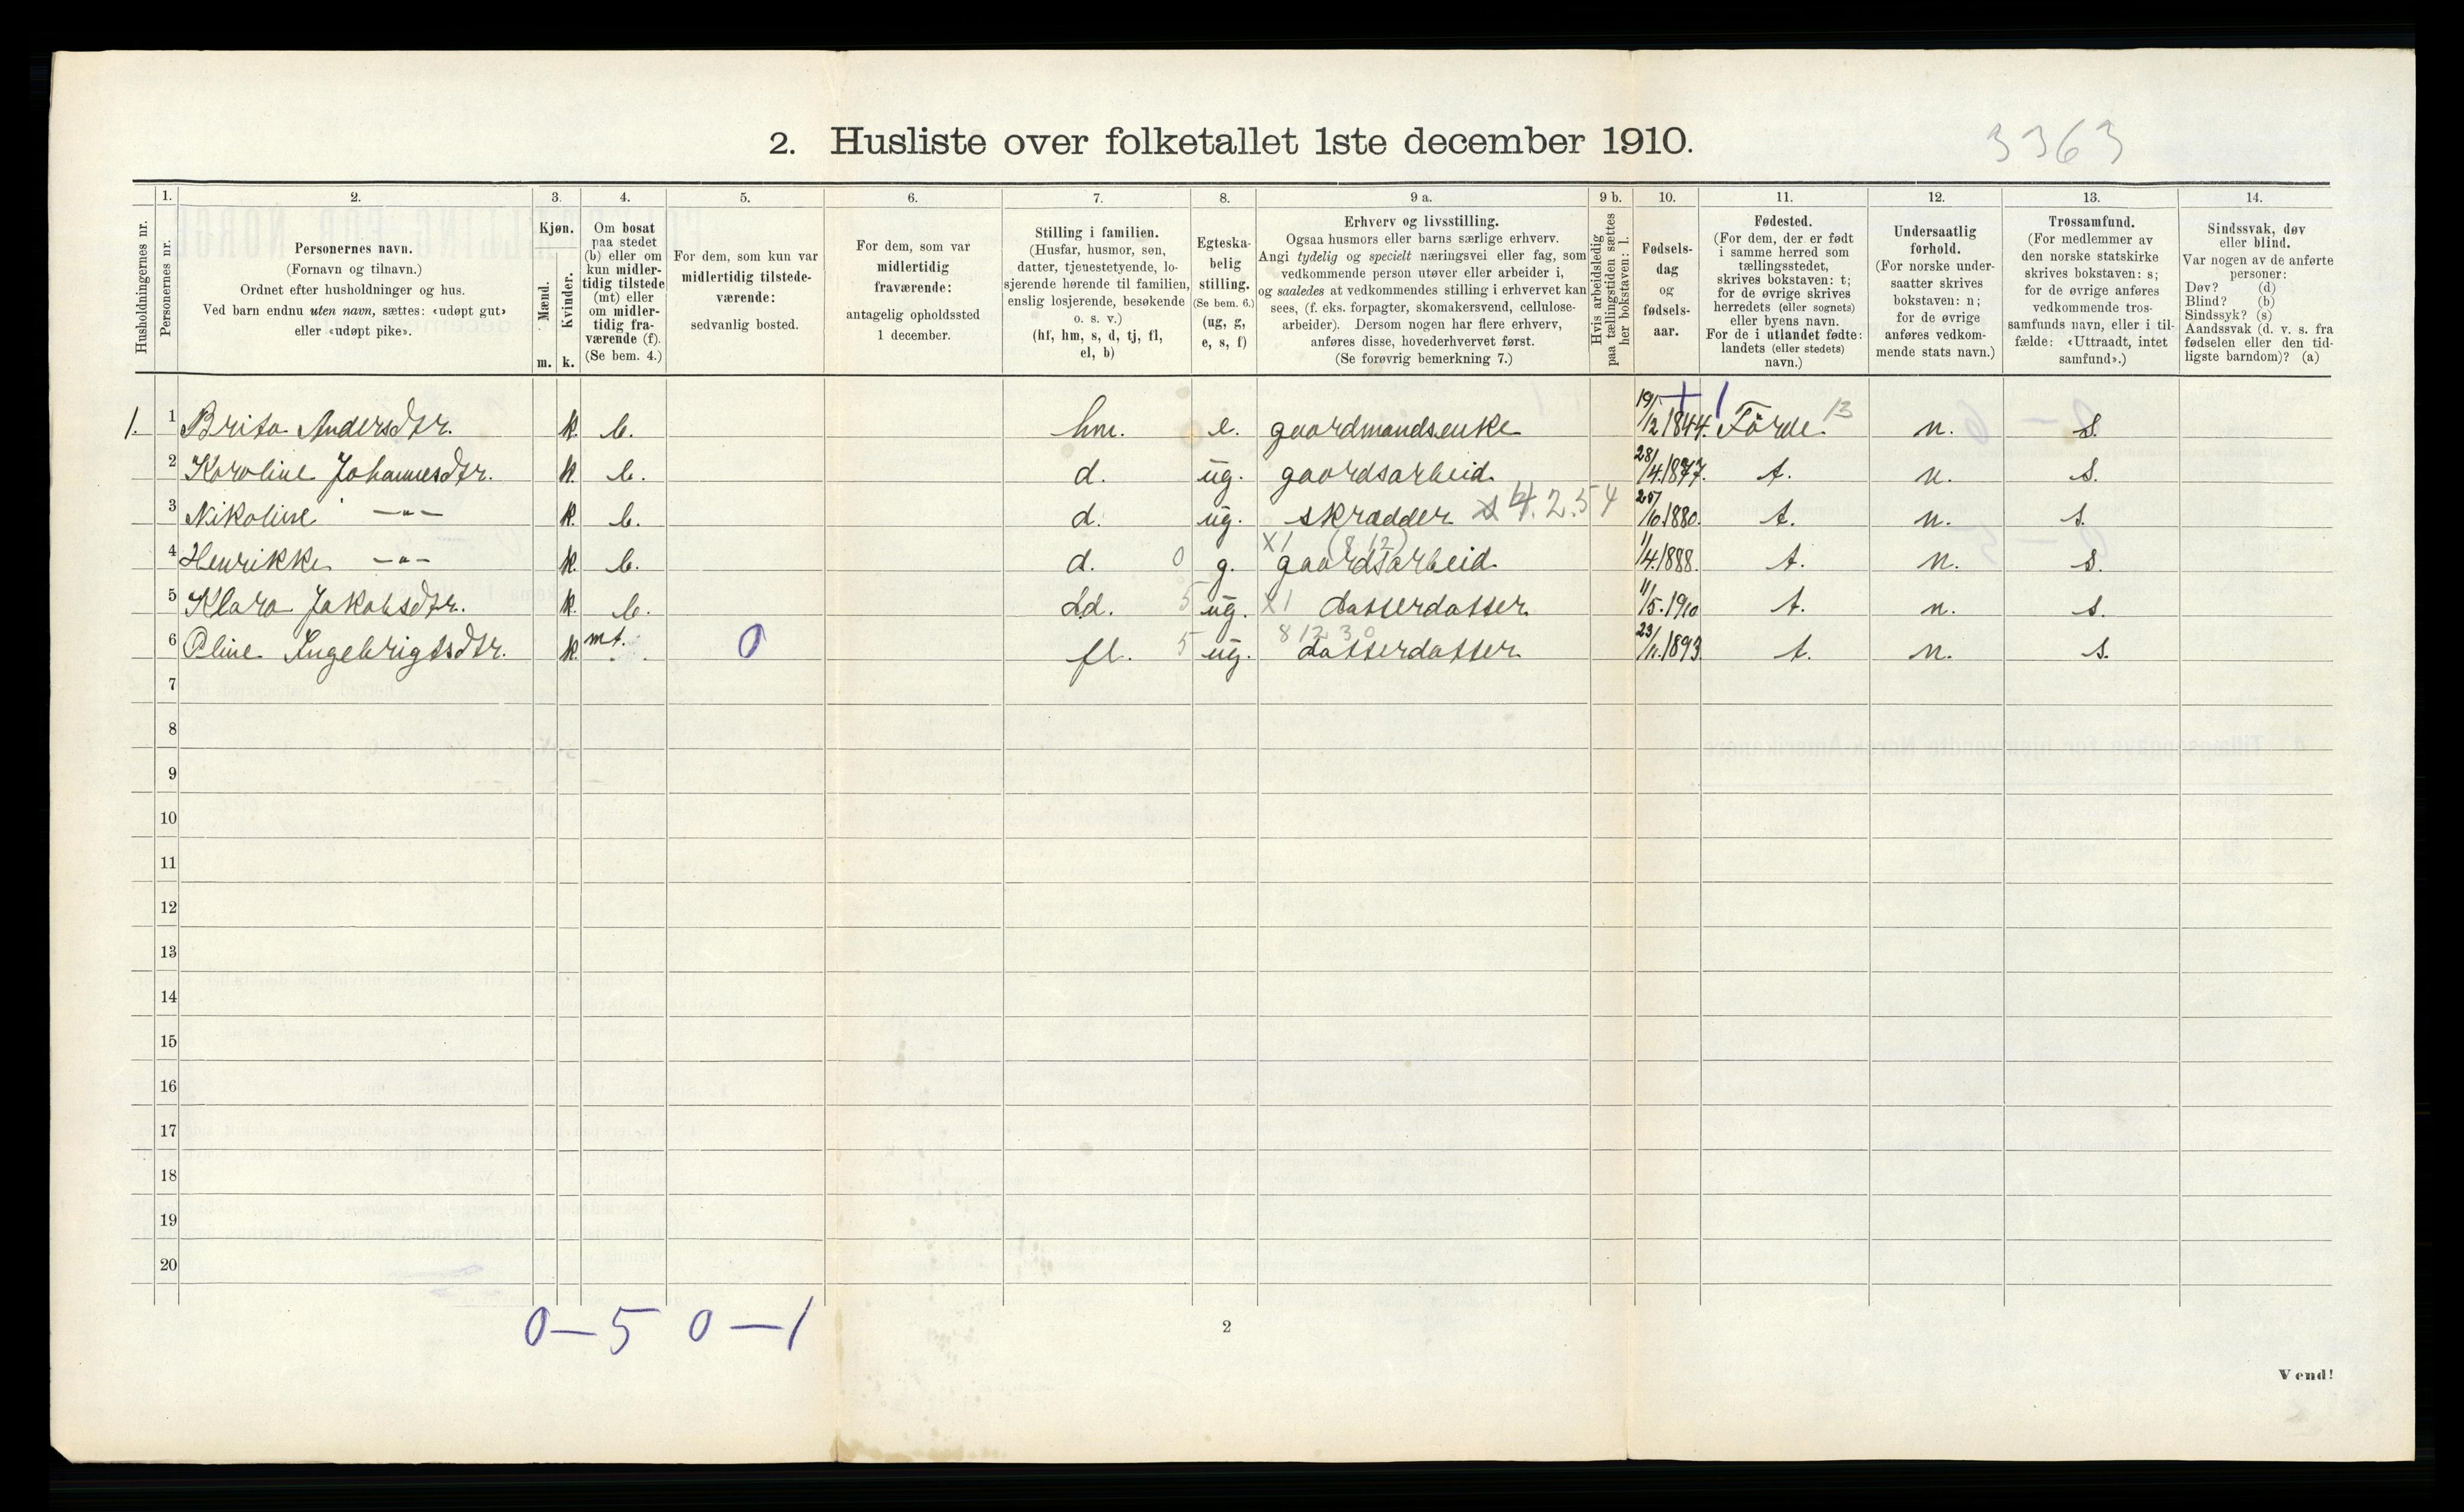 2. Husliste over folketallet 1ste december 1910.
3363
Husholdningernes nr.
1.
Personernes nr.
2.
Personernes navn.
(Fornavn og tilnavn.)
Ordnet efter husholdninger og hus.
Ved barn endnu uten navn, sættes: «udøpt gut»
eller «udøpt pike».
3.
Kjøn.
Mænd.
Kvinder.
m. k.
4.
Om bosat
paa stedet
(b) eller om
kun midler-
tidig tilstede
(mt) eller
om midler-
tidig fra-
værende (f).
(Se bem. 4.)
5.
For dem, som kun var
midlertidig tilstede-
værende:
sedvanlig bosted.
6.
For dem, som var
midlertidig
fraværende:
antagelig opholdssted
1 december.
7.
Stilling i familien.
(Husfar, husmor, søn,
datter, tjenestetyende, lo-
sjerende hørende til familien,
enslig losjerende, besøkende
o. s. v.)
(hf, hm, s, d, tj, fl,
el, b)
8.
Egteska-
belig
stilling.
(Se bem. 6.)
(ug, g,
e, s, f)
9 a.
Erhverv og livsstilling.
Ogsaa husmors eller barns særlige erhverv.
Angi tydelig og specielt næringsvei eller fag, som
vedkommende person utøver eller arbeider i,
og saaledes at vedkommendes stilling i erhvervet kan
sees, (f. eks. forpagter, skomakersvend, cellulose-
arbeider). Dersom nogen har flere erhverv,
anføres disse, hovederhvervet først.
(Se forøvrig bemerkning 7.)
9 b.
Hvis arbeidsledig
paa tællingstiden sættes
her bokstaven: l.
10.
Fødsels-
dag
og
fødsels-
aar.
11.
Fødested.
(For dem, der er født
i samme herred som
tællingsstedet,
skrives bokstaven: t;
for de øvrige skrives
herredets (eller sognets)
eller byens navn.
For de i utlandet fødte:
landets (eller stedets)
navn.)
12.
Undersaatlig
forhold.
(For norske under-
saatter skrives
bokstaven: n;
for de øvrige
anføres vedkom-
mende stats navn.)
13.
Trossamfund.
(For medlemmer av
den norske statskirke
skrives bokstaven: s;
for de øvrige anføres
vedkommende tros-
samfunds navn, eller i til-
fælde: «Uttraadt, intet
samfund».)
14.
Sindssvak, døv
eller blind.
Var nogen av de anførte
personer:
Døv? (d)
Blind? (b)
Sindssyk? (s)
Aandssvak (d. v. s. fra
fødselen eller den tid-
ligste barndom)? (a)
1. 1 Brita Andersdtr. k. b. hm. e. gaardmandsenke 19/12 1844. Förde 13 n. s.
2 Karoline Johannesdtr. k. b. d. ug. gaardsarbeid. 28/4.1877. t. n. s.
3 Nikoline —"— k. b. d. ug. skrædder 4.2.54 25/10.1880. t. n. s.
X1 (8 12)
4 Henrikke —"— k. b. d. 0 g. gaardsarbeid. 1/4.1888. t. n. s.
5 Klara Jakobsdtr. k. b. dd. 5 ug. X1 datterdatter 11/5.1910 t. n. s.
8 12 3 0
6 Oline Ingebrigtsdtr. k. mt. 0 fl. 5 ug. datterdatter 23/11.1893. t. n. s.
7
8
9
10
11
12
13
14
15
16
17
18
19
20
0—5 0—1
2
Vend!